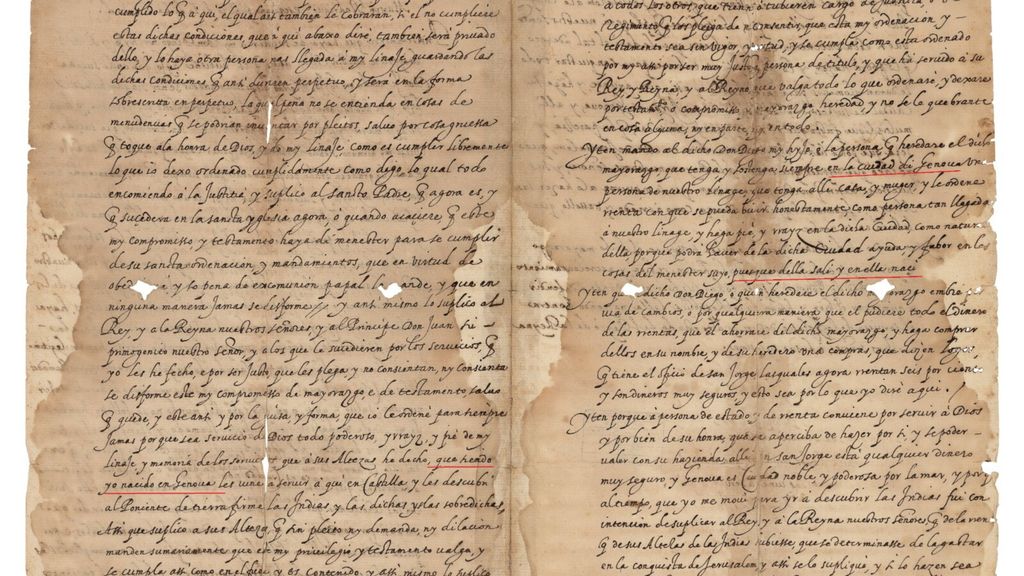 cumplido lo q̃ a qui, el qual assi tambien le cobraran, si el no cumpliere
estas dichas condiciones, que a qui abaxo dire, tambien sera privado
dello, y lo haya otra persona mas llegada à my linaje, guardando las
dichas condiciones q̃ ansi duren perpetuo, y sera en la forma
sobrescrita en perpetuo, La qual pena no se entienda en cosas de
menudencias q̃ se podrian inventar por pleitos, salvo por cosa gruessa
q̃ toque ala honra de Dios, y de my linaje como es cumplir libremente
lo que io dexo ordenado cumplidamente como digo, lo qual todo
encomiendo à la Justitia, y suplico al Sancto Padre, q̃ agora es, y
q̃ sucedera en la sancta yglesia agora, o quando acaecere q̃ este
my compromisso y testamento haya de menester para se cumplir
de su sancta ordenacion, y mandamientos, que en virtud de
obe y so pena de excomunion papal lo mande, y que en
ninguna manera jamas se disforme, y ansi mismo lo suplico al
Rey, y a la Reyna nuestros señores, y al Principe Don Juan su
primogenito nuestro señor, y a los que le sucedieren por los servicios, q̃
yo les he fecho, e por ser justo, que les plega, y no consientan, ny consienta
se disforme este my compromisso de mayorazgo e de testamento, salvo
q̃ quede, y este ansi y por la guisa, y forma, que io le ordené para siempre
jamas porque sea servicio de Dios todo poderoso, y rrayz, y pié de my
linaje, y memoria de los servicios que à sus Altezas he hecho, que siendo
yo nacido en Genova les vine a servir à qui en Castilla, y les descubri
al Poniente de tierra firme las Indias y las dichas yslas sobredichas
Assi que suplico a sus Altezas q̃ sin pleito, ny demanda, ny dilacion
manden sumariamente que este my privilegio, y testamento valga, y
se cumpla assi como en el fuere, y es contenido, y assi mismo lo suplico
à todos los otros, que tienen ò tuvieren cargo de justicia, ò
regimiento q̃ les plega de consentir, que esta my ordenacion, y
testamento sea sin vigor, y virtud, y se cumpla como esta ordenado
por my assi por ser muy justo persona de titulo, y que ha servido à su
Rey, y Reyna, y al Reyno, que valga todo lo que ordenare, y dexare
por testamẽto ò compromisso mayorazgo heredad y no se lo que brante
en cosa alguna, ny en parte, ny en todo.
Yten mando al dicho Don Diego my hijo, ò la persona q̃ heredare el dicho
mayorazgo que tenga, y sostenga siempre en la ciudad de Genova una
persona de nuestro linage que tenga alli casa, y muger, y le ordene
rrenta con que se pueda bivir honestamente, como persona tan llegada
à nuestro linage, y haga pié, y rrayz en la dicha Ciudad, como natural
della porque podra haver de la dicha Ciudad ayuda, y fabor en las
cosas del menester suyo, pues que della sali, y en ella naci
Yten que dicho Don Diego, ò quien heredare el dicho mayorazgo embie
via de cambios, ò por qualquiera manera, que el pudiere todo el dinero
de las rrentas, que el ahorrare del dicho mayorazgo, y haga comprar
dellos en su nombre, y de su heredero una compras, que dizen Logos
q̃ tiene el oficio de san Jorge, las quales agora rrentan seis por ciento
y son dineros muy seguros, y esto sea por lo que yo diré aqui.
Yten porque à persona de estado, y de renta conviene por servir à Dios
y por bien de su honra, que se aperciba de hazer por si, y se poder
valer con su hazienda, alli en san Jorge està qualquier dinero
muy seguro, y Genova es Ciudad noble, y poderosa por la mar, y porq̃
al tiempo, que yo me movi para yr à descubrir las Indias fui con
intencion de suplicar al Rey, y à la Reyna nuestros señores q̃ de la renta
q̃ de sus Altezas de las Indias oviesse, que se determinasse de la gastar
en la conquista de Jerusalem, y assi se lo supliqué, y si lo hazen sea